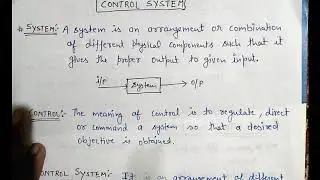 CONTROL SYSTEM
* SYSTEM:- A system is an arrangement or combination
of different physical components such that it
gives the proper output to given input.
i/P → System → O/P
CONTROL:- The meaning of control is to regulate, direct
or command a system so that a desired
objective is obtained.
CONTROL SYSTEM: It is an arrangement of different